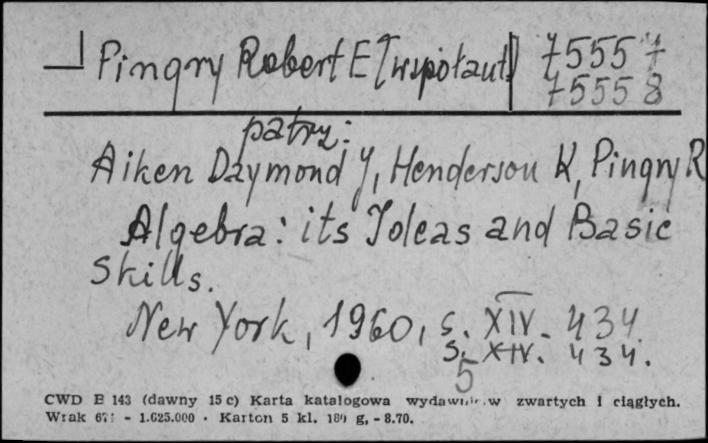 Pingry Robert E [współaut] 75557
75558
patrz:
Aiken Daymond J, Henderson K, Pingry R
Algebra: its Ideas and Basic
Skills.
New York, 1960, s. XIV. 434.
s. XIV. 434.
5
CWD E 143 (dawny 15 c) Karta katalogowa wydawn. w zwartych i ciągłych.
Wrak - 1.625.000 · Karton 5 kl. 180 g, - 8.70.